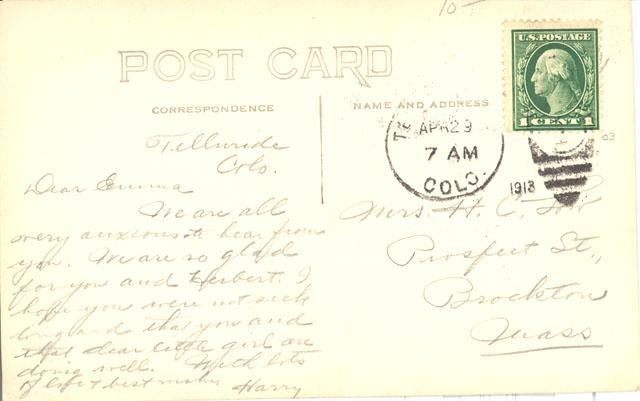 10-
POST CARD
CORRESPONDENCE
NAME AND ADDRESS
U.S. POSTAGE
1 CENT 1
APR 29
7 AM
COLO.
1913
03
Telluride
Colo.
Dear Emma
We are all
very anxious to hear from
you. We are so glad
for you and Herbert. I
hope you were not sick
long and that you and
that dear little girl are
doing well. With lots
of love & best wishes
Harry
Mrs. H. C.
Prospect St.,
Brockton
Mass